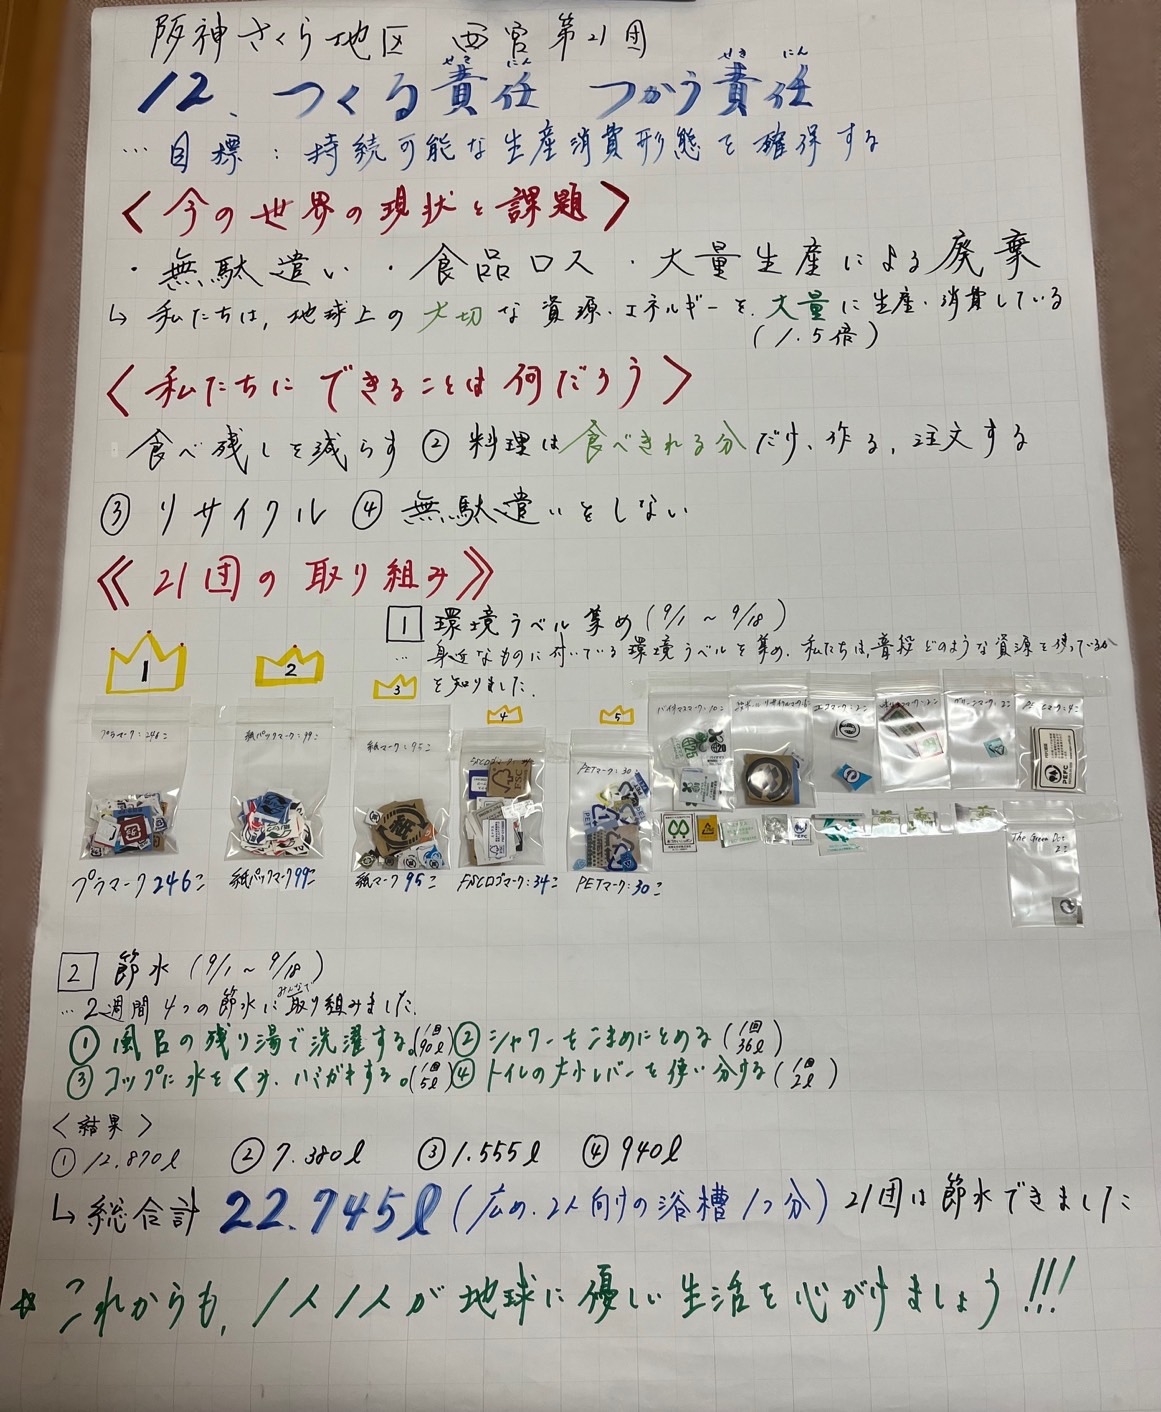 阪神さくら地区 西宮第21団
せきにん せきにん
12. つくる責任 つかう責任
…目標：持続可能な生産消費形態を確保する
〈今の世界の現状と課題〉
・無駄遣い ・食品ロス ・大量生産による廃棄
↳ 私たちは、地球上の大切な資源・エネルギーを、大量に生産・消費している
(1.5倍)
〈私たちにできることは何だろう〉
食べ残しを減らす ② 料理は食べきれる分だけ、作る、注文する
③ リサイクル ④ 無駄遣いをしない
《21団の取り組み》
1 環境ラベル集め (9/1～9/18)
… 身近なものに付いている環境ラベルを集め、私たちは、普段どのような資源を使っているか
を知りました。
1
2
3
4
5
プラマーク:246こ
紙パックマーク:99こ
紙マーク:95こ
PETマーク:30こ
The Green Dot
2こ
PEFC
プラマーク246こ 紙パックマーク99こ 紙マーク95こ FSCロゴマーク:34こ PETマーク:30こ
2 節水 (9/1～9/18)
みんなで
…2週間4つの節水に取り組みました。
① 風呂の残り湯で洗濯する。(1回90ℓ) ② シャワーをこまめにとめる (1回36ℓ)
③ コップに水をくみ、ハミガキする。(1回5ℓ) ④ トイレの大小レバーを使い分ける (1回2ℓ)
〈結果〉
① 12.870ℓ ② 7.380ℓ ③ 1.555ℓ ④ 940ℓ
↳ 総合計 22.745ℓ (広め、2人向けの浴槽1つ分) 21団は節水できました
☆ これからも、1人1人が地球に優しい生活を心がけましょう!!!